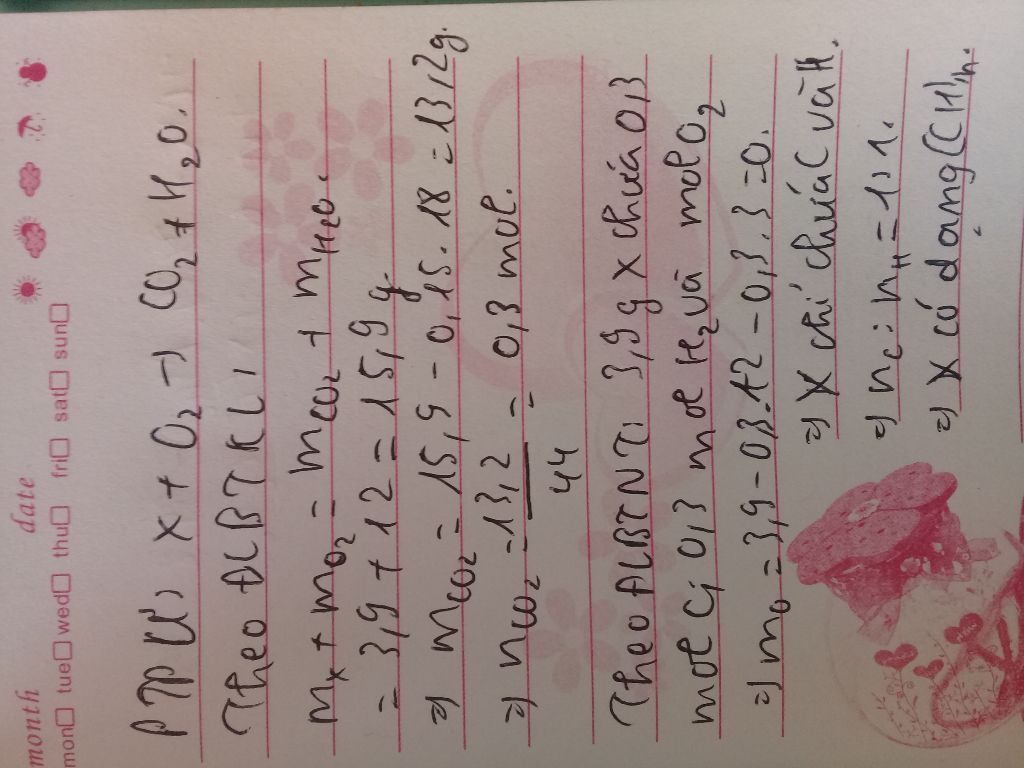 month
date
mon tue wed thu fri sat sun
PTPƯ: X + O2 → CO2 + H2O.
Theo ĐLBTKL,
mX + mO2 = mCO2 + mH2O.
= 3,9 + 12 = 15,9 g.
=) mCO2 = 15,9 - 0,15.18 = 13,2g.
=) nCO2 = 13,2/44 = 0,3 mol.
Theo ĐLBTNT: 3,9g X chứa 0,3
mol C; 0,3 mol H2 và mol O2
=) mO = 3,9 - 0,3.12 - 0,3.3 = 0.
=) X chỉ chứa C và H.
=) nC : nH = 1:1.
=) X có dạng (CH)n.